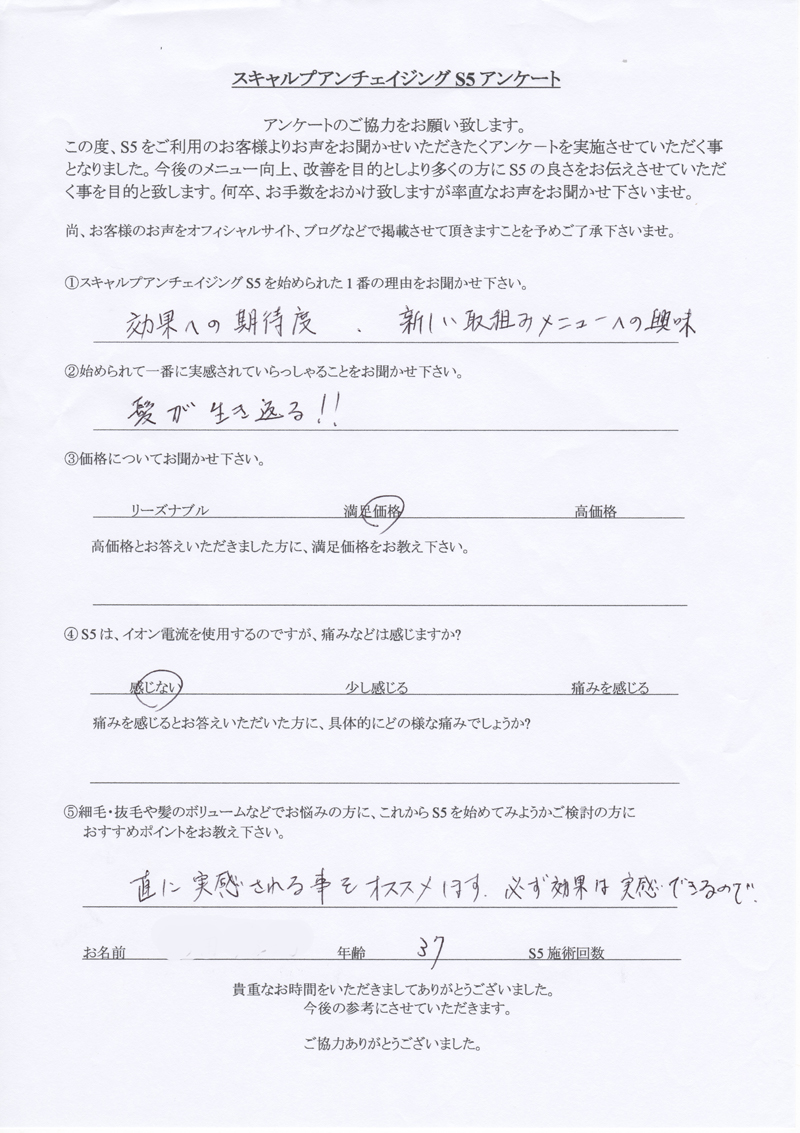 スキャルプアンチェイジング S5 アンケート
アンケートのご協力をお願い致します。
この度、S5をご利用のお客様よりお声をお聞かせいただきたくアンケートを実施させていただく事
となりました。今後のメニュー向上、改善を目的としより多くの方にS5の良さをお伝えさせていただ
く事を目的と致します。何卒、お手数をおかけ致しますが率直なお声をお聞かせ下さいませ。
尚、お客様のお声をオフィシャルサイト、ブログなどで掲載させて頂きますことを予めご了承下さいませ。
①スキャルプアンチェイジングS5を始められた1番の理由をお聞かせ下さい。
効果への期待度 、 新しい取組みメニューへの興味
②始められて一番に実感されていらっしゃることをお聞かせ下さい。
髪が生き返る!!
③価格についてお聞かせ下さい。
リーズナブル 満足価格 高価格
高価格とお答えいただきました方に、満足価格をお教え下さい。
④S5は、イオン電流を使用するのですが、痛みなどは感じますか?
感じない 少し感じる 痛みを感じる
痛みを感じるとお答えいただいた方に、具体的にどの様な痛みでしょうか?
⑤細毛・抜毛や髪のボリュームなどでお悩みの方に、これからS5を始めてみようかご検討の方に
おすすめポイントをお教え下さい。
直に実感される事をオススメします。必ず効果は実感できるので。
お名前 年齢 37 S5施術回数
貴重なお時間をいただきましてありがとうございました。
今後の参考にさせていただきます。
ご協力ありがとうございました。